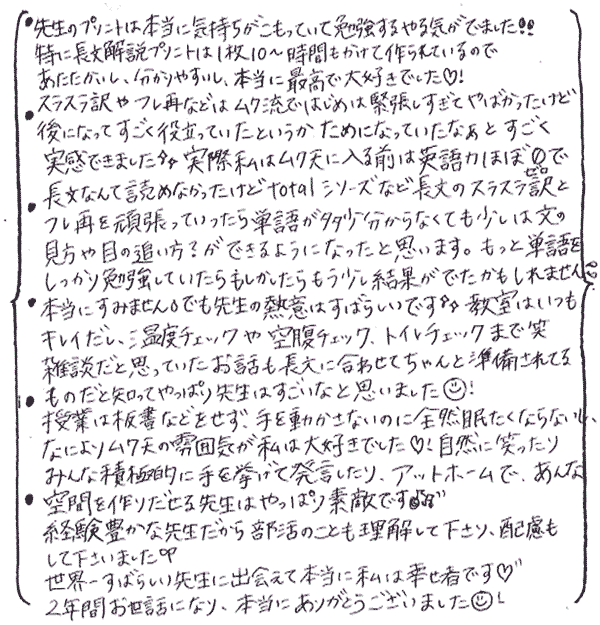 先生のプリントは本当に気持ちがこもっていて勉強するやる気がでました!!
特に長文解説プリントは1枚10〜時間もかけて作られているので
あたたかいし、分かりやすいし、本当に最高で大好きでした♡!
スラスラ訳やフレ再などはムク流ではじめは緊張しすぎてやばかったけど
後になってすごく役立っていたというかためになっていたなぁとすごく
実感できました 実際私はムク天に入る前は英語力ほぼ0で
ゼロ
長文なんて読めなかったけどtotalシリーズなど長文のスラスラ訳と
フレ再を頑張っていったら単語が多少分からなくても少しは文の
見方や目の追い方?ができるようになったと思います。もっと単語を
しっかり勉強していたらもしかしたらもう少し結果がでたかもしれません
本当にすみません。でも先生の熱意はすばらしいです 教室はいつも
キレイだし、温度チェックや空腹チェック、トイレチェックまで笑
雑談だと思っていたお話も長文に合わせてちゃんと準備されてる
ものだと知ってやっぱり先生はすごいなと思いました☺!
授業は板書などをせず、手を動かさないのに全然眠たくならないし、
なによりムク天の雰囲気が私は大好きでした♡!自然に笑ったり
みんな積極的に手を挙げて発言したり、アットホームで、あんな
空間を作りだせる先生はやっぱり素敵です
経験豊かな先生だから部活のことも理解して下さり、配慮も
して下さいました
世界一すばらしい先生に出会えて本当に私は幸せ者です♡
2年間お世話になり、本当にありがとうございました☺